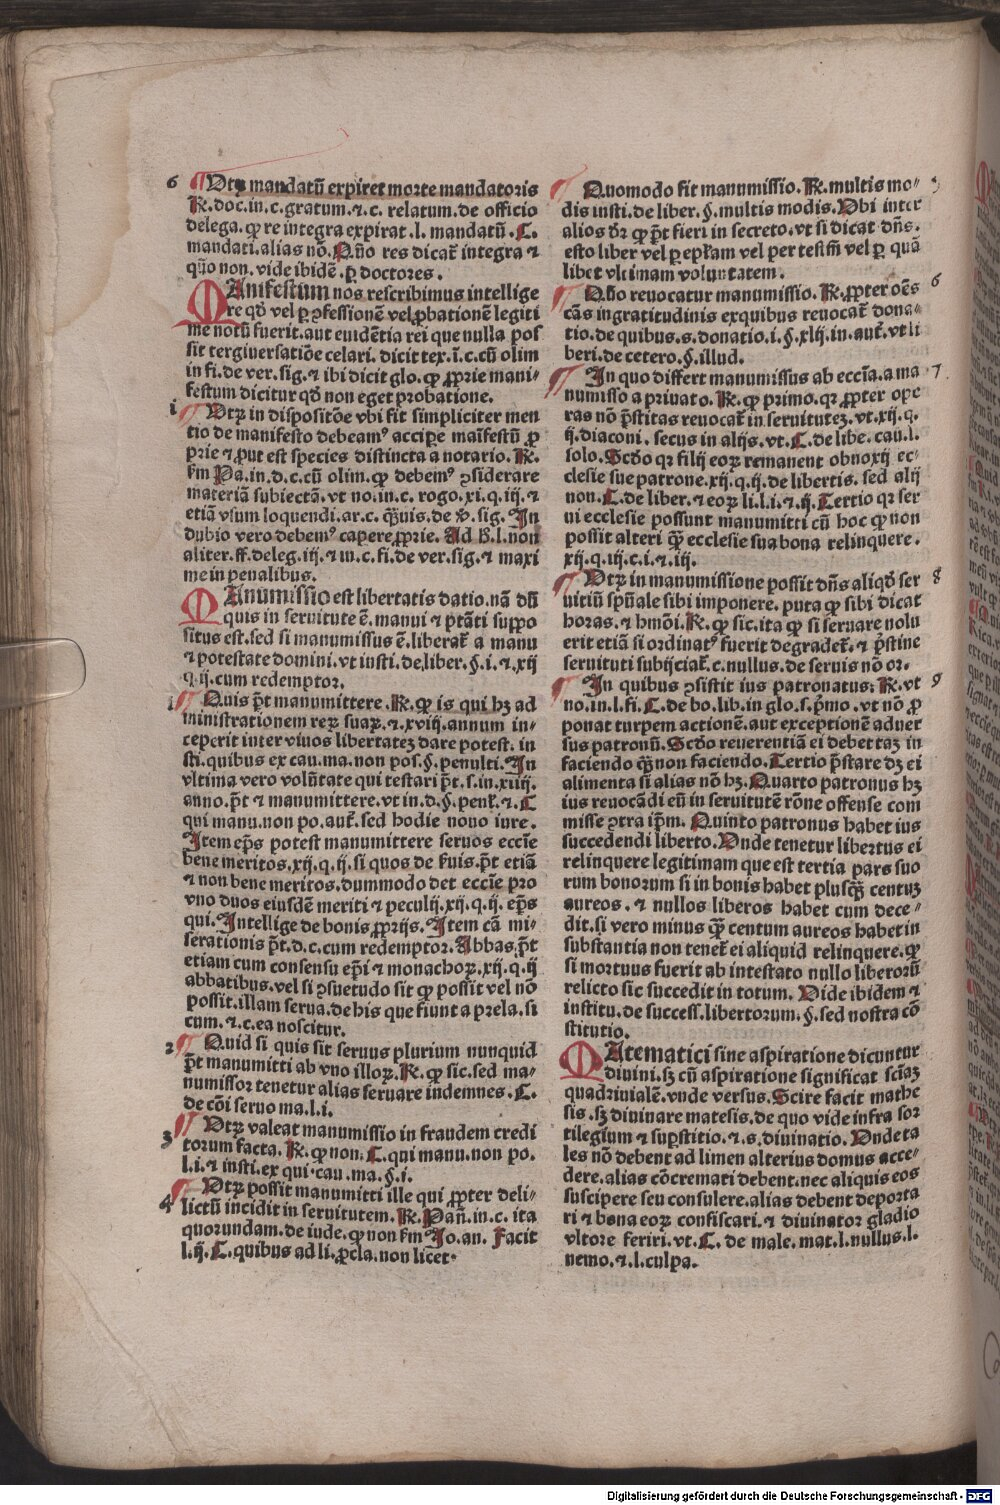 6 ¶ Utrū mandatū expiret morte mandatoris
℟. doc. in. c. gratum. ⁊. c. relatum. de officio
delega. ꝙ re integra expirat. l. mandatū. C.
mandati. alias nō. Qn̄o res dicat̄ integra ⁊
qn̄o non. vide ibidē. ꝑ doctores.
MAnifestum nos rescribimus intellige
re qd̄ vel ꝑ ꝓfessionē vel ꝓbationē legiti
me notū fuerit. aut euidētia rei que nulla pos
sit tergiuersatiōe celari. dicit tex. ī. c. cū olim
in fi. de ver. sig. ⁊ ibi dicit glo. ꝙ ꝓprie mani-
festum dicitur qd̄ non eget probatione.
1 ¶ Utrum in dispositōe vbi fit simpliciter men
tio de manifesto debeamꝰ accipe maīfestū ꝓ
prie ⁊ put est species distincta a notario. ℟.
ẜm Pa. in. d. c. cū olim. ꝙ debemꝰ ↄsiderare
materiā subiectā. vt no. in. c. rogo. xi. q. iij. ⁊
etiā vsum loquendi. ar. c. qͣuis. de v̄. sig. In
dubio vero debemꝰ capere ꝓprie. Ad B. l. non
aliter. ff. de leg. iij. ⁊ in. c. fi. de ver. sig. ⁊ maxi
me in penalibus.
MAnumissio est libertatis datio. nā dū
quis in seruitute ē. manui ⁊ ptāti suppo
situs est. sed si manumissus ē. liberat̄ a manu
⁊ potestate domini. vt insti. de liber. §. i. ⁊. xij
q. ij. cum redemptor.
1 ¶ Quis p̄t manumittere. ℟. ꝙ is qui hꝫ ad
ministrationem reꝝ suaꝝ. ⁊. xviij. annum in-
ceperit inter viuos libertatē dare potest. in
sti. quibus ex cau. ma. non pos. §. penulti. In
vltima vero volūtate qui testari p̄t. s. in. xiiij.
anno. p̄t ⁊ manumittere. vt in. d. §. penl̄. ⁊. C
qui manu. non po. aut̄. sed hodie nouo iure.
Item ep̄s potest manumittere seruos eccīe
bene meritos. xij. q. ij. si quos de ẜuis. p̄t etiā
⁊ non bene meritos. dummodo det eccīe pro
vno duos eiusdē meriti ⁊ peculij. xij. q. ij. ep̄s
qui. Intellige de bonis ꝓprijs. Item cā mi-
serationis p̄t. d. c. cum redemptor. Abbas p̄t
etiam cum consensu ep̄i ⁊ monachoꝝ. xij. q. ij
abbatibus. vel si ↄsuetudo sit ꝙ possit vel nō
possit. illam serua. de his que fiunt a prela. si
cum. ⁊. c. ea noscitur.
2 ¶ Quid si quis sit seruus plurium nunquid
p̄t manumitti ab vno illoꝝ. ℟. ꝙ sic. sed ma-
numissor tenetur alias seruare indemnes. C.
de cōi seruo ma. l. i.
3 ¶ Utrum valeat manumissio in fraudem credi
torum facta. ℟. ꝙ non. C. qui manu. non po.
l. i. ⁊ insti. ex qui. cau. ma. §. i.
4 ¶ Utrum possit manumitti ille qui ꝓpter deli-
lictū incidit in seruitutem. ℟. Pañ. in. c. ita
quorundam. de iude. ꝙ non ẜm Jo. an. Facit
l. ij. C. quibus ad li. ꝓcla. non licet.
¶ Quomodo fit manumissio. ℟. multis mo- 5
dis insti. de liber. §. multis modis. Ubi inter
alios dr̄ ꝙ p̄t fieri in secreto. vt si dicat dn̄s.
esto liber vel ꝑ epłam vel per testm̄ vel ꝑ quā
libet vltimam voluntatem.
¶ Qn̄o reuocatur manumissio. ℟. ꝓpter oēs 6
cās ingratitudinis ex quibus reuocat̄ dona-
tio. de quibus. s. donatio. i. §. xlij. in. aut̄. vt li
beri. de cetero. §. illud.
¶ In quo differt manumissus ab eccīa. a ma 7
numisso a priuato. ℟. ꝙ primo. qꝛ ꝓpter ope
ras nō p̄stitas reuocat̄ in seruitutē. vt. xij. q.
ij. diaconi. secus in alijs. vt. C. de libe. cau. l.
solo. Scd̄o qꝛ filij eoꝝ remanent obnoxij ec-
clesie sue patrone. xij. q. ij. de libertis. sed alij
non. C. de liber. ⁊ eoꝝ li. l. i. ⁊. ij. Tertio qꝛ ser
ui ecclesie possunt manumitti cū hoc ꝙ non
possit alteri qͣꝫ ecclesie sua bona relinquere.
xij. q. iij. c. i. ⁊. iij.
¶ Utrum in manumissione possit dn̄s aliqd̄ ser 8
uitiū spūale sibi imponere. puta ꝙ sibi dicat
horas. ⁊ hmōi. ℟. ꝙ sic. ita ꝙ si seruare nolu
erit etiā si ordinatꝰ fuerit degradet̄. ⁊ p̄stine
seruituti subijciat̄. c. nullus. de seruis nō or.
¶ In quibus ↄsistit ius patronatus: ℟. vt 9
no. in. l. fi. C. de bo. lib. in glo. s. p̄mo. vt nō ꝓ
ponat turpem actionē. aut exceptionē aduer
sus patronū. Scd̄o reuerentiā ei debet taꝫ in
faciendo qͣꝫ non faciendo. Tertio p̄stare dꝫ ei
alimenta si alias nō hꝫ. Quarto patronus hꝫ
ius reuocādi eū in seruitutē rōne offense com
misse ↄtra ip̄m. Quinto patronus habet ius
succedendi liberto. Unde tenetur libertus ei
relinquere legitimam que est tertia pars suo
rum bonorum si in bonis habet plusqͣꝫ centuꝫ
aureos. ⁊ nullos liberos habet cum dece-
dit. si vero minus qͣꝫ centum aureos habet in
substantia non tenet̄ ei aliquid relinquere. ꝙ
si mortuus fuerit ab intestato nullo liberorū
relicto sic succedit in totum. Vide ibidem ⁊
institu. de success. libertorum. §. sed nostra cō
stitutio.
MAtematici sine aspiratione dicuntur
diuini. sꝫ cū aspiratione significat sciāꝫ
quadriuialē. vnde versus. Scire facit mathe
sis. sꝫ diuinare matesis. de quo vide infra sor
tilegium ⁊ supstitio. ⁊. s. diuinatio. Unde ta
les nō debent ad limen alterius domus acce-
dere. alias cōcremati debent. nec aliquis eos
suscipere seu consulere. alias debent deporta
ri ⁊ bona eoꝝ confiscari. ⁊ diuinator gladio
vltore feriri. vt. C. de male. mat. l. nullus. l.
nemo. ⁊. l. culpa.
Digitalisierung gefördert durch die Deutsche Forschungsgemeinschaft - DFG